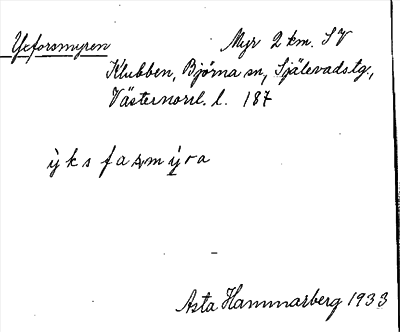 Yxforsmyren Myr 2 km. SV
Klubben, Björna sn, Själevadstg.,
Västernorrl. l. 187
ỳks fasmýra
Asta Hammarberg 1933